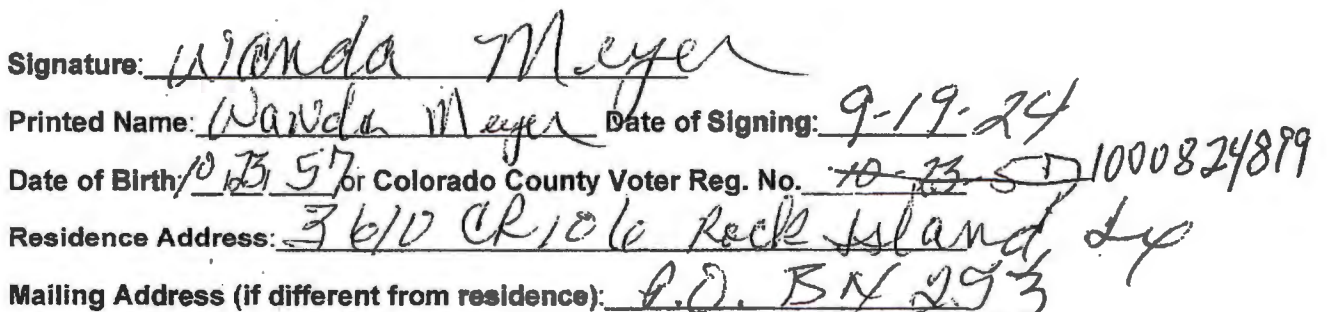 Signature: Wanda Meyer
Printed Name: Wanda Meyer Date of Signing: 9-19-24
Date of Birth: 10/23/57 or Colorado County Voter Reg. No. 10-23-57 1000824899
Residence Address: 3610 CR 106 Rock Island, Tx
Mailing Address (if different from residence): P.O. BX 293